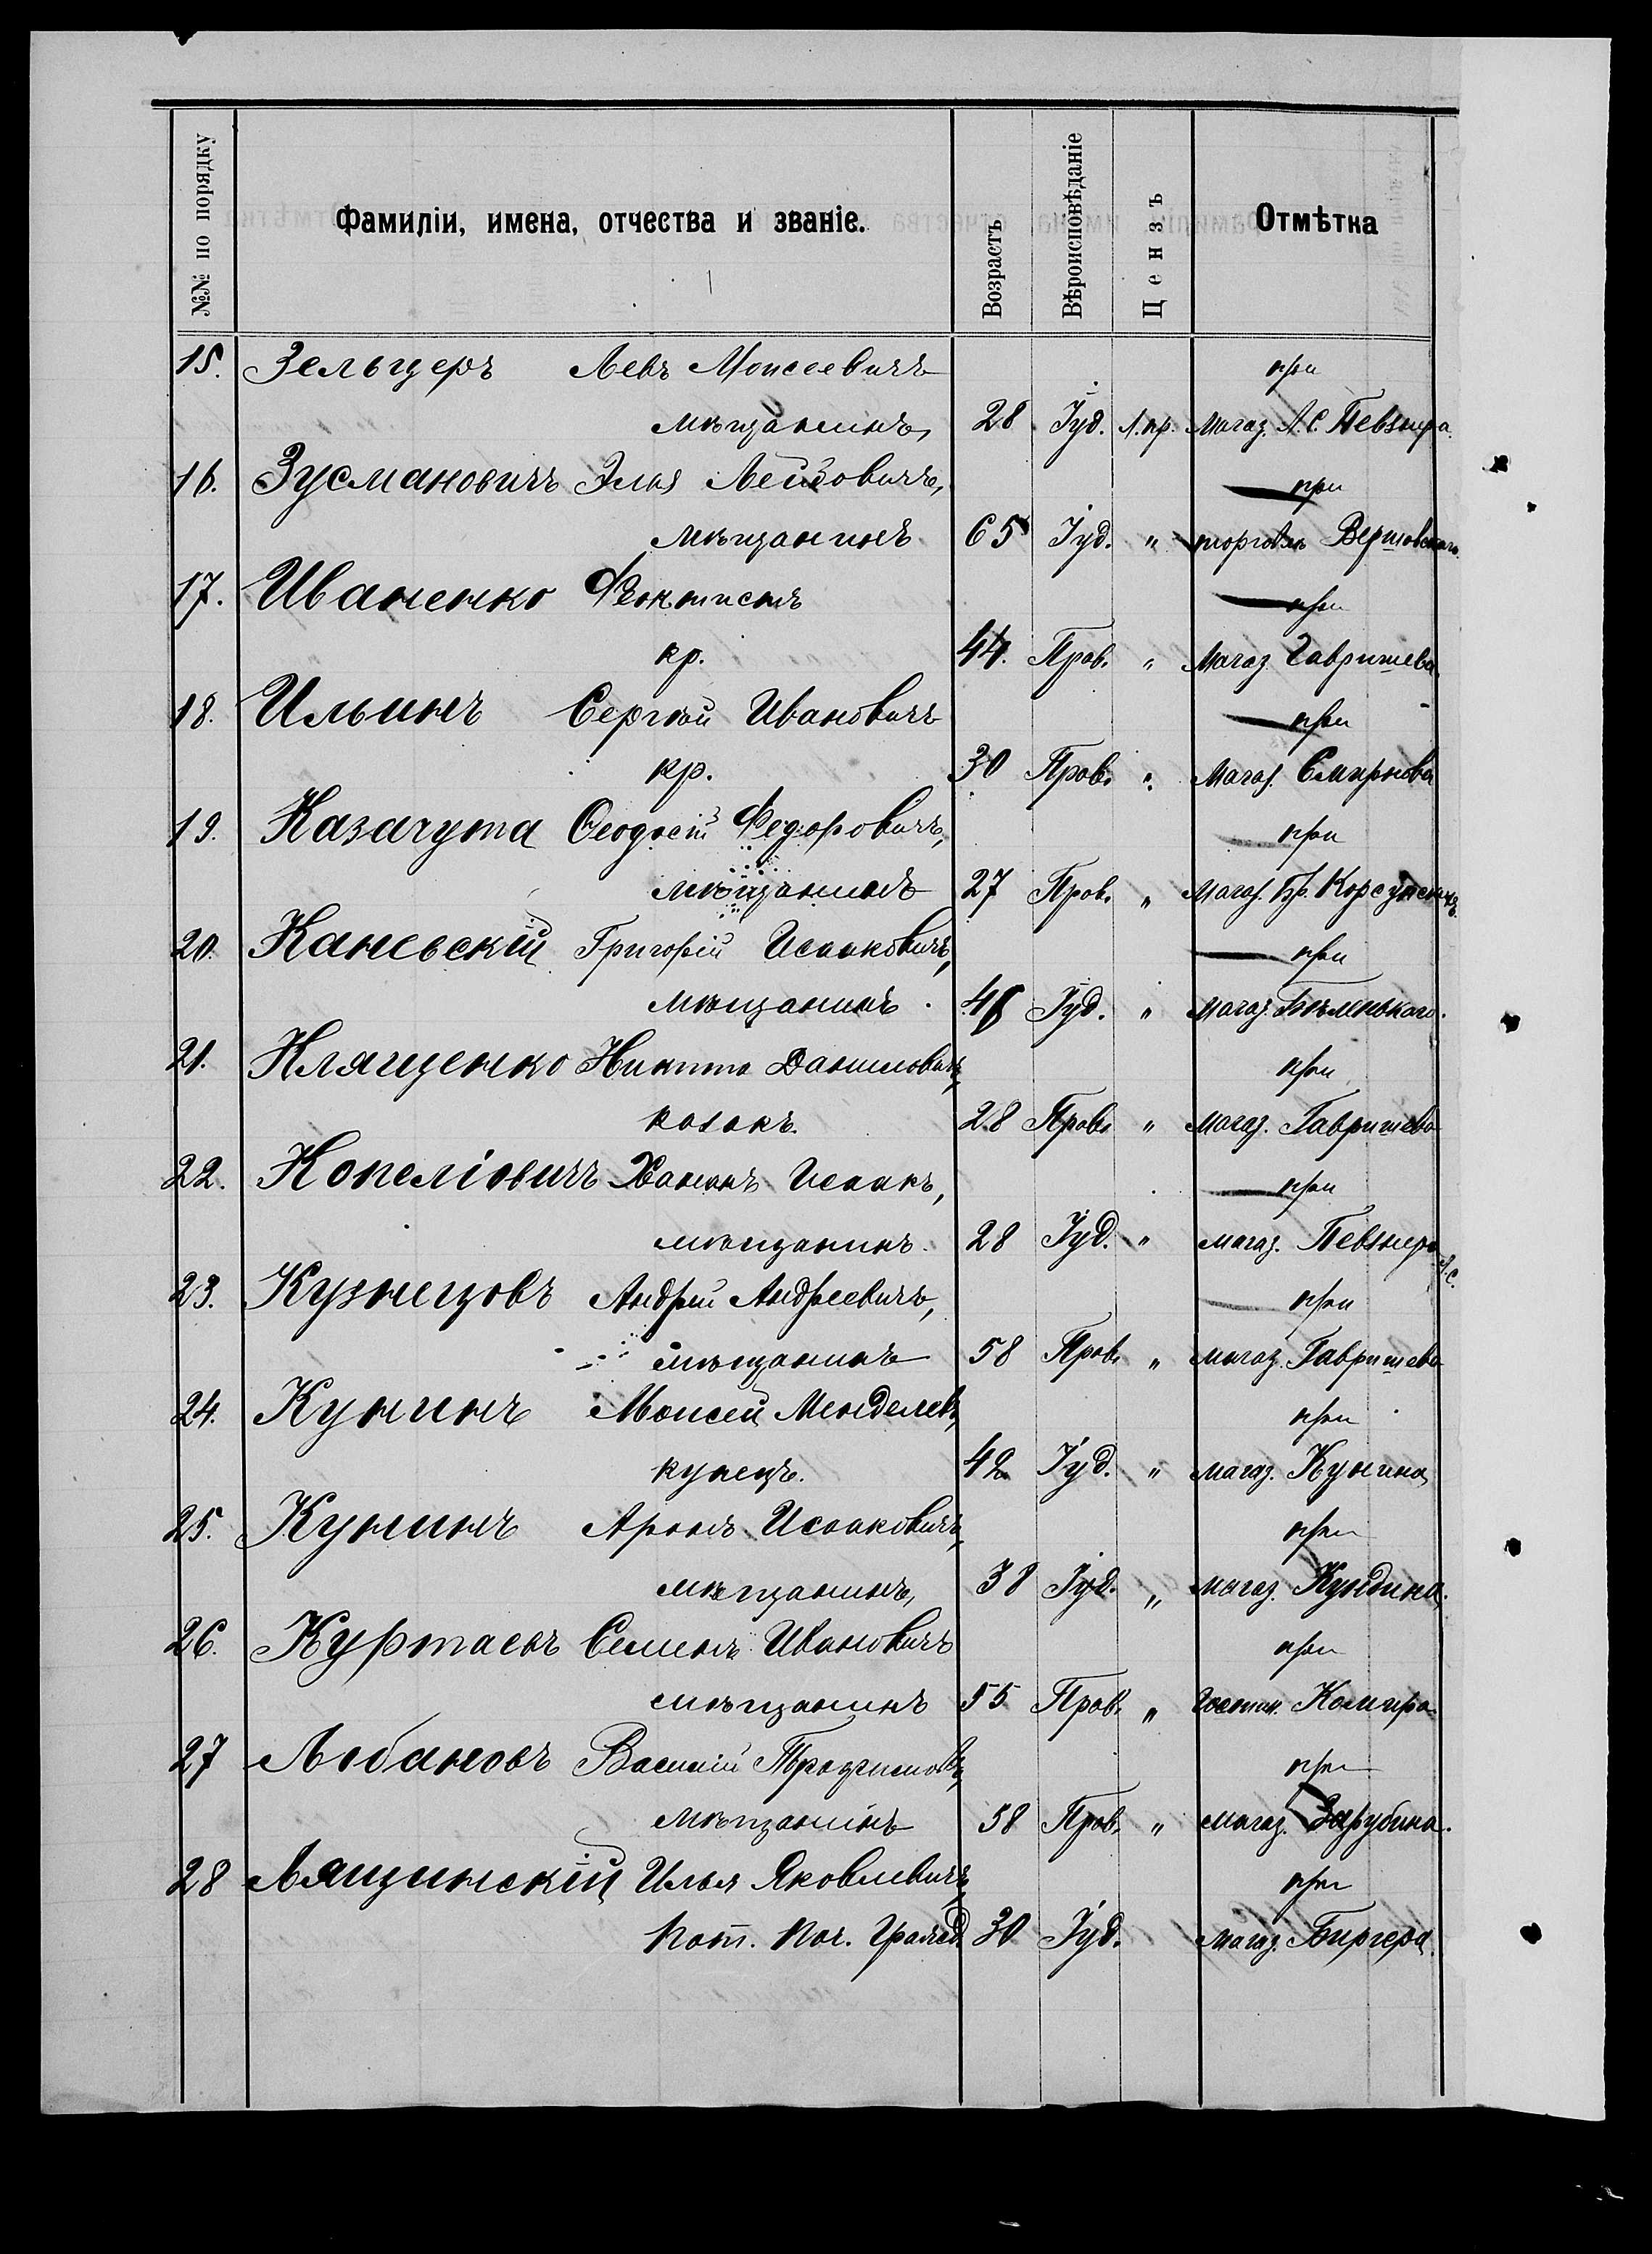 №№ по порядку
Фамиліи, имена, отчества и званіе.
Возрастъ
Вѣроисповѣданіе
Цензъ
Отмѣтка
15. Зельцеръ Левъ Моисеевичъ при
мѣщанинъ, 28 Іуд. Л. пр. магаз. Л. С. Певзнера.
16. Зусмановичъ Элья Лейбовичъ, при
мѣщанинъ 65 Іуд. " торговлѣ
17. Иваненко Феоктистъ при
кр. 44. Прав. " Магаз. Гавришева
18. Ильинъ Сергѣй Ивановичъ при
кр. 30 Прав. " Магаз. Смирнова
19. Казачута Ѳеодосій Федоровичъ, при
мѣщанинъ 27 Прав. " Магаз. Бр. Корсунскихъ.
20. Каневскій Григорій Исааковичъ, при
мѣщанинъ. Іуд. " магаз. Бѣленькаго.
21. Клященко Никита Даниловичъ, при
козакъ. 28 Прав. " магаз. Гавришева
22. Копеліовичъ Хананъ Исаакъ, при
мѣщанинъ. 28 Іуд. " магаз. Певзнера Л. С.
23. Кузнецовъ Андрей Андреевичъ, при
мѣщанинъ 58 Прав. " магаз. Гавришева
24. Кунинъ Моисей Менделевъ, при
купецъ. 42 Іуд. " магаз. Кунина
25. Кунинъ Аронъ Исааковичъ, при
мѣщанинъ, 38 Іуд. " магаз. Кундина.
26. Куртаевъ Семенъ Ивановичъ при
мѣщанинъ 55 Прав. " Гостин.
27 Лобановъ Василій при
мѣщанинъ 58 Прав. " магаз. Зарубина.
28 Лящинскій Илья Яковлевичъ, при
Пот. Поч. Гражд. 30 Іуд. магаз. Биргера.